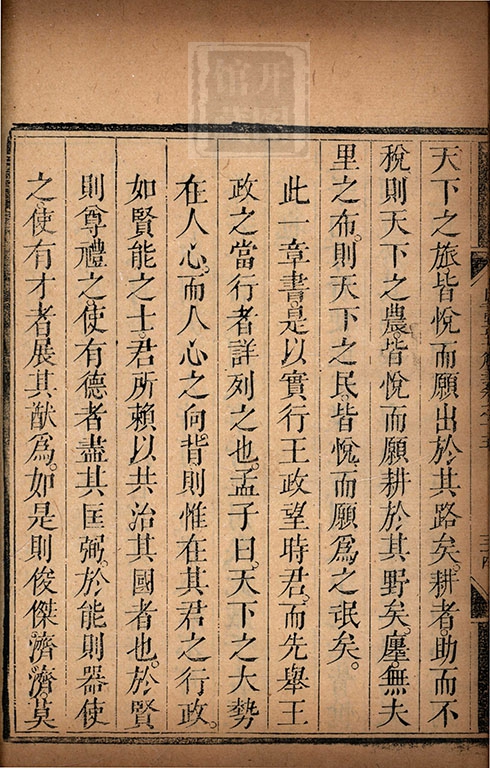 天下之旅皆悅而願出於其路矣。耕者助而不
稅則天下之農皆悅而願耕於其野矣。廛無夫
里之布。則天下之民。皆悅而願爲之氓矣。
此一章書。是以實行王政望時君。而先舉王
政之當行者詳列之也。孟子曰。天下之大勢
在人心。而人心之向背。則惟在其君之行政。
如賢能之士。君所賴以共治其國者也。於賢
則尊禮之。使有德者盡其匡弼。於能則器使
之。使有才者展其猷爲。如是則俊傑濟濟。莫